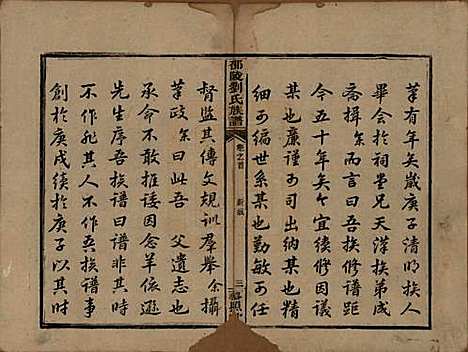 筆有年矣歲庚子清明族人
畢會於祠堂兄天漢族弟成
斋揖余而言曰吾修族譜距
今五十年矣宜續修因議
某也廉謹可司出納某也精
細可編世系某也勤敏可任
邵陵劉氏族譜
卷之首
三
督監其傳文規訓羣舉余攝
筆政余曰此吾 父遺志也
承命不敢推諉因念年伯遜
先生序吾族譜曰譜非其時
不作非其人不作吾族譜事
創於庚戌續於庚子以其時